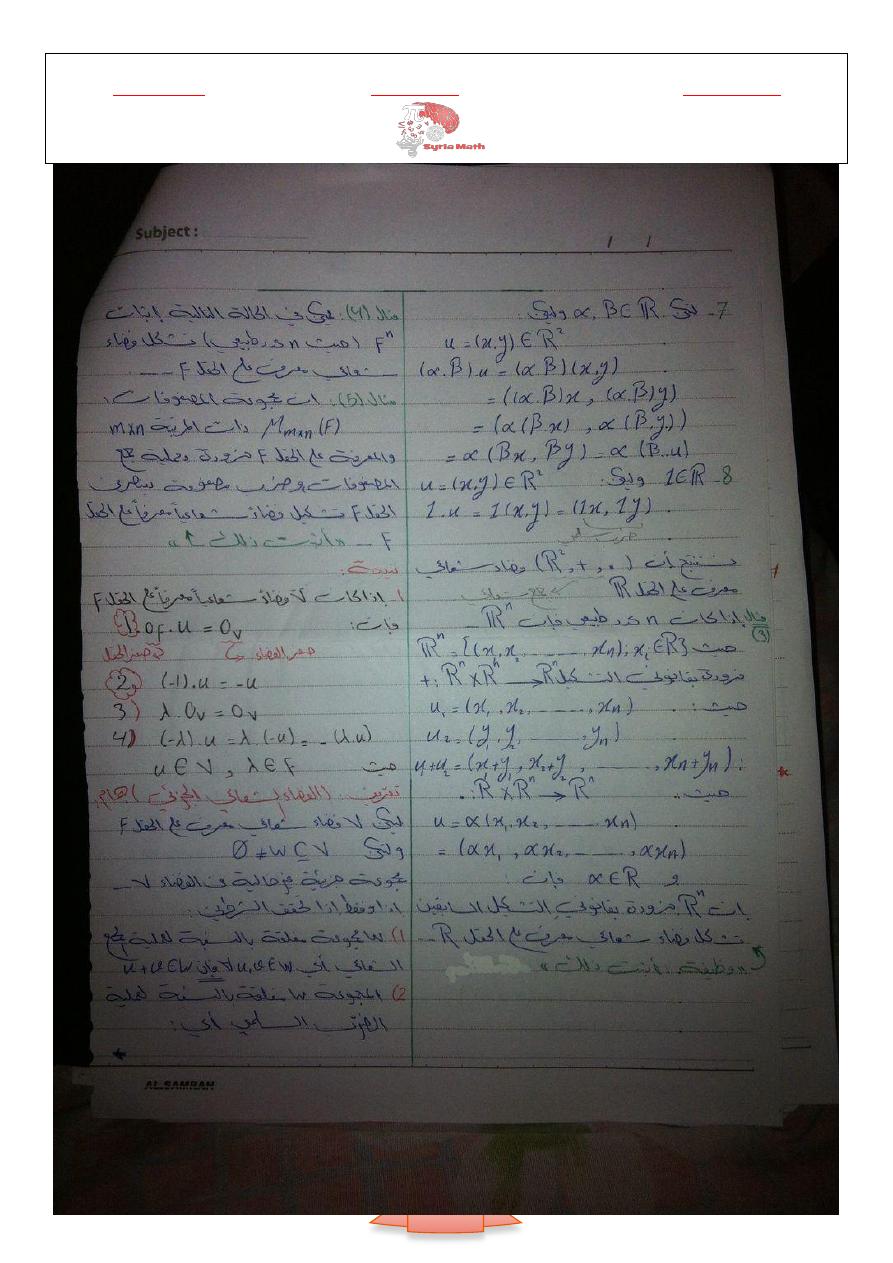 Syria Math
Subject :
/ /
7- ليكن α, β ∈ ℝ وليكن:
u = (x,y) ∈ ℝ²
(α.β).u = (α.β)(x,y)
= ((α.β)x , (α.β)y)
= (α(βx) , α(β.y))
= α(βx, βy) = α(β.u)
8- 1∈ℝ وليكن: u = (x,y) ∈ ℝ²
1.u = 1(x,y) = (1x, 1y)
نستنتج أن (ℝ², +, .) فضاء شعاعي
معرف على الحقل ℝ
جمع شعاعي
مثال (3) إذا كانت n عدد طبيعي فإن ℝⁿ
حيث ℝⁿ = {(x₁,x₂ ...... xₙ); xᵢ∈ℝ}
مزودة بقانوني التشكيل +: ℝⁿ×ℝⁿ → ℝⁿ
حيث: u₁ = (x₁, x₂, ......, xₙ)
u₂ = (y₁, y₂, ......, yₙ)
u₁+u₂ = (x₁+y₁, x₂+y₂, ......, xₙ+yₙ) :
حيث: . : ℝ×ℝⁿ → ℝⁿ
u = α(x₁,x₂, ...... xₙ)
= (αx₁, αx₂, ......, αxₙ)
و α∈ℝ فإن:
إن ℝⁿ مزودة بقانوني التشكيل السابقين
تشكل فضاء شعاعي معرف على الحقل ℝ
«وظيفة: أثبت ذلك»
مثال (4): ليكن في الحالة التالية إثبات
Fⁿ (حيث n عدد طبيعي) تشكل فضاء
شعاعي معرف على الحقل F ...
مثال (5): إن مجموعة المصفوفات
Mₘₓₙ(F) ذات المرتبة m×n
والمعرفة على الحقل F مزودة بعملية جمع
المصفوفات وضرب مصفوفة بعنصر من
الحقل F تشكل فضاءً شعاعياً معرفاً على الحقل
F ... «أثبت ذلك ↑»
نتيجة:
1. إذا كانت V فضاءً شعاعياً معرفاً على الحقل F
فإن: 1. 0F.u = 0V
صفر الفضاء صفر الحقل
2) (-1).u = -u
3) λ.0V = 0V
4) (-λ).u = λ.(-u) = -(λ.u)
حيث u∈V, λ∈F
تعريف: (الفضاء الشعاعي الجزئي) هام
ليكن V فضاء شعاعي معرف على الحقل F
وليكن ∅ ≠ W ⊆ V
مجموعة جزئية غير خالية من الفضاء V ...
إذا وفقط إذا تحقق الشرطين:
1) W مجموعة مغلقة بالنسبة لعملية الجمع
الشعاعي أي ∀ u,v∈W فإن u+v∈W
2) المجموعة W مغلقة بالنسبة لعملية
الضرب السلمي أي:
AL SAMRAH